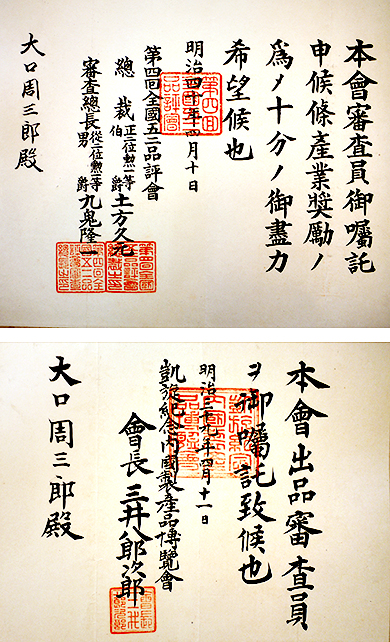 本會審査員御囑託
申候條產業奬勵ノ
爲メ十分ノ御盡力
希望候也
明治四十年四月十日
第四回全國五二品評會
總裁 正二位勲一等 伯爵 土方久元
審査總長 從二位勲一等 男爵 九鬼隆一
大口周三郎殿
本會出品審査員
ヲ御囑託致候也
明治三十九年四月十一日
凱旋紀念內國製產品博覽會
會長 三井八郎次郎
大口周三郎殿